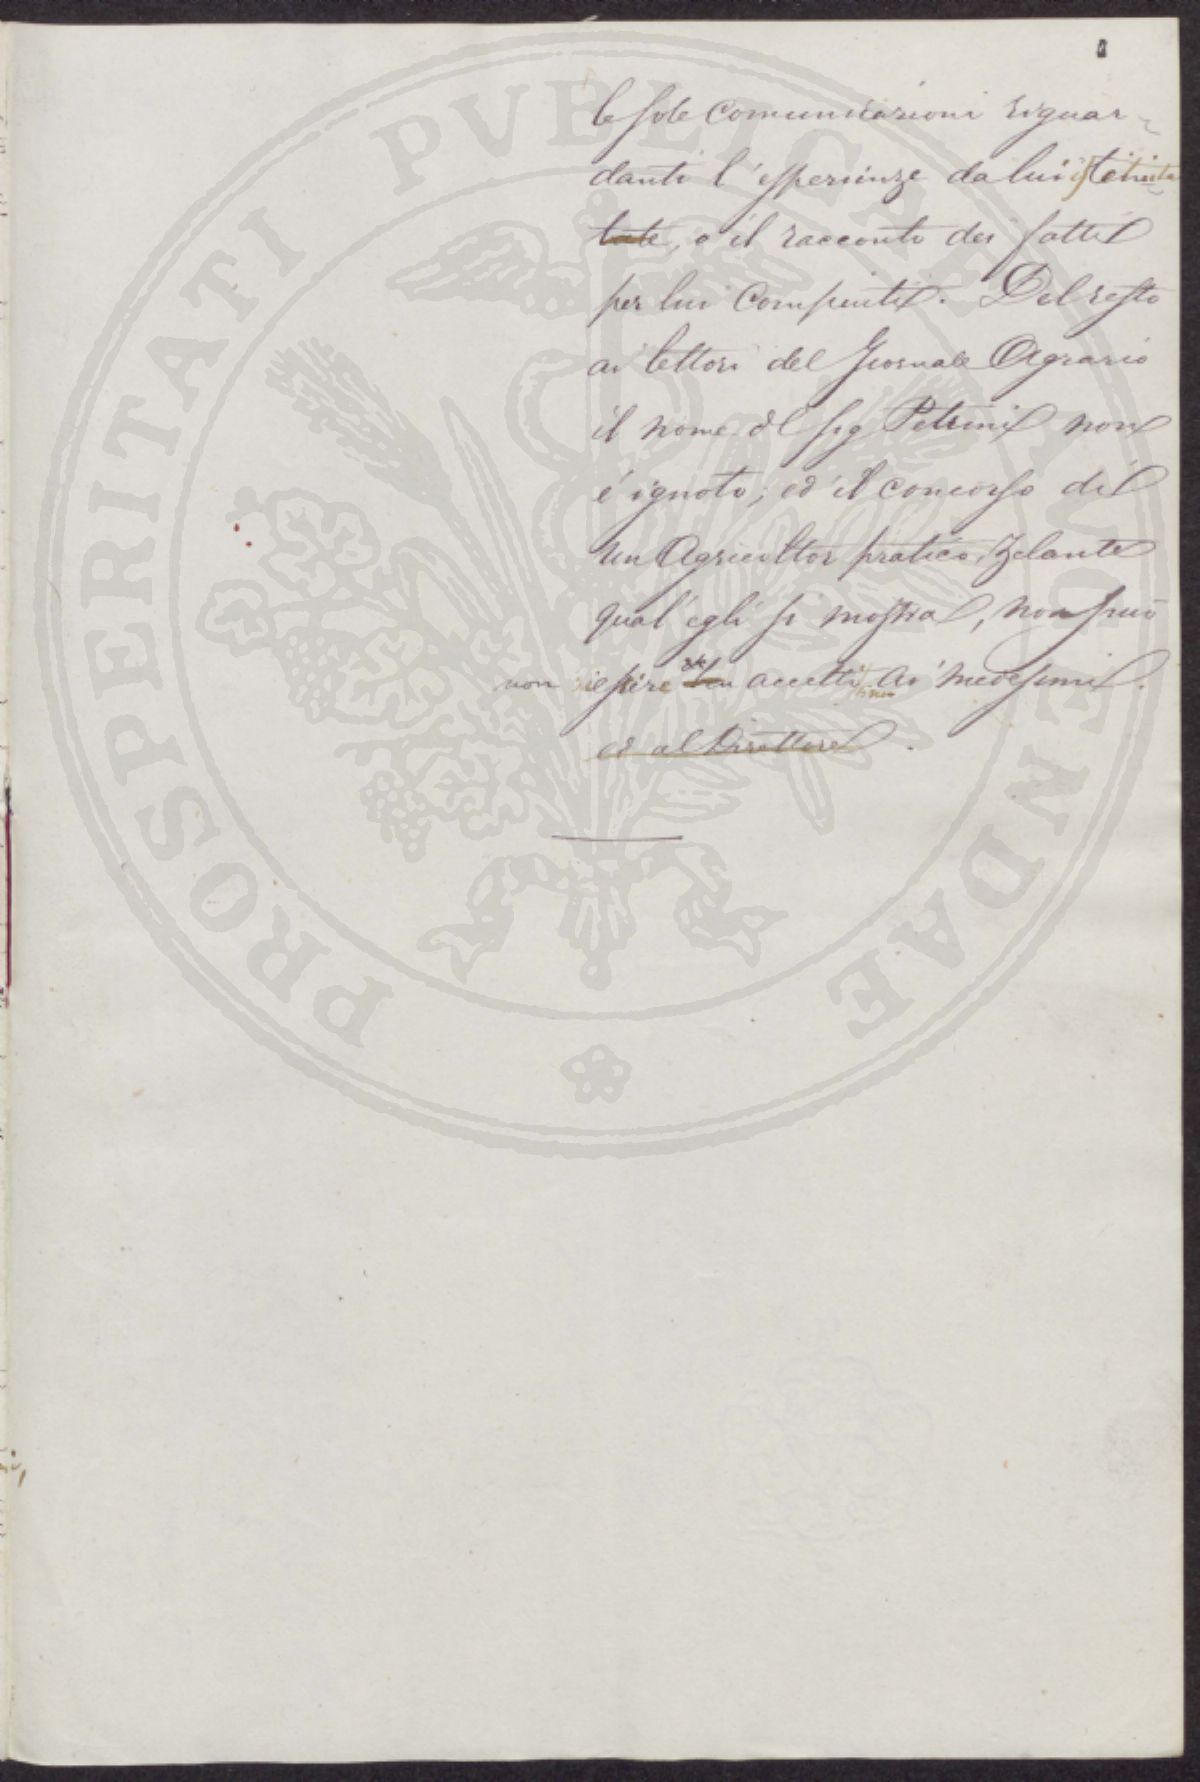 le sole comunicazioni riguar-
danti l'esperienze da lui
tate, o il racconto dei fatti
per lui compiuti. Del resto
ai lettori del Giornale Agrario
il nome del sig Petrini non
é ignoto; ed il concorso di
un Agricoltor pratico, zelante
qual'egli si mostra, non può
non accetti ai medesimi.
ed al Direttore.
PROSPERITATI PVBLICAE AVGENDAE